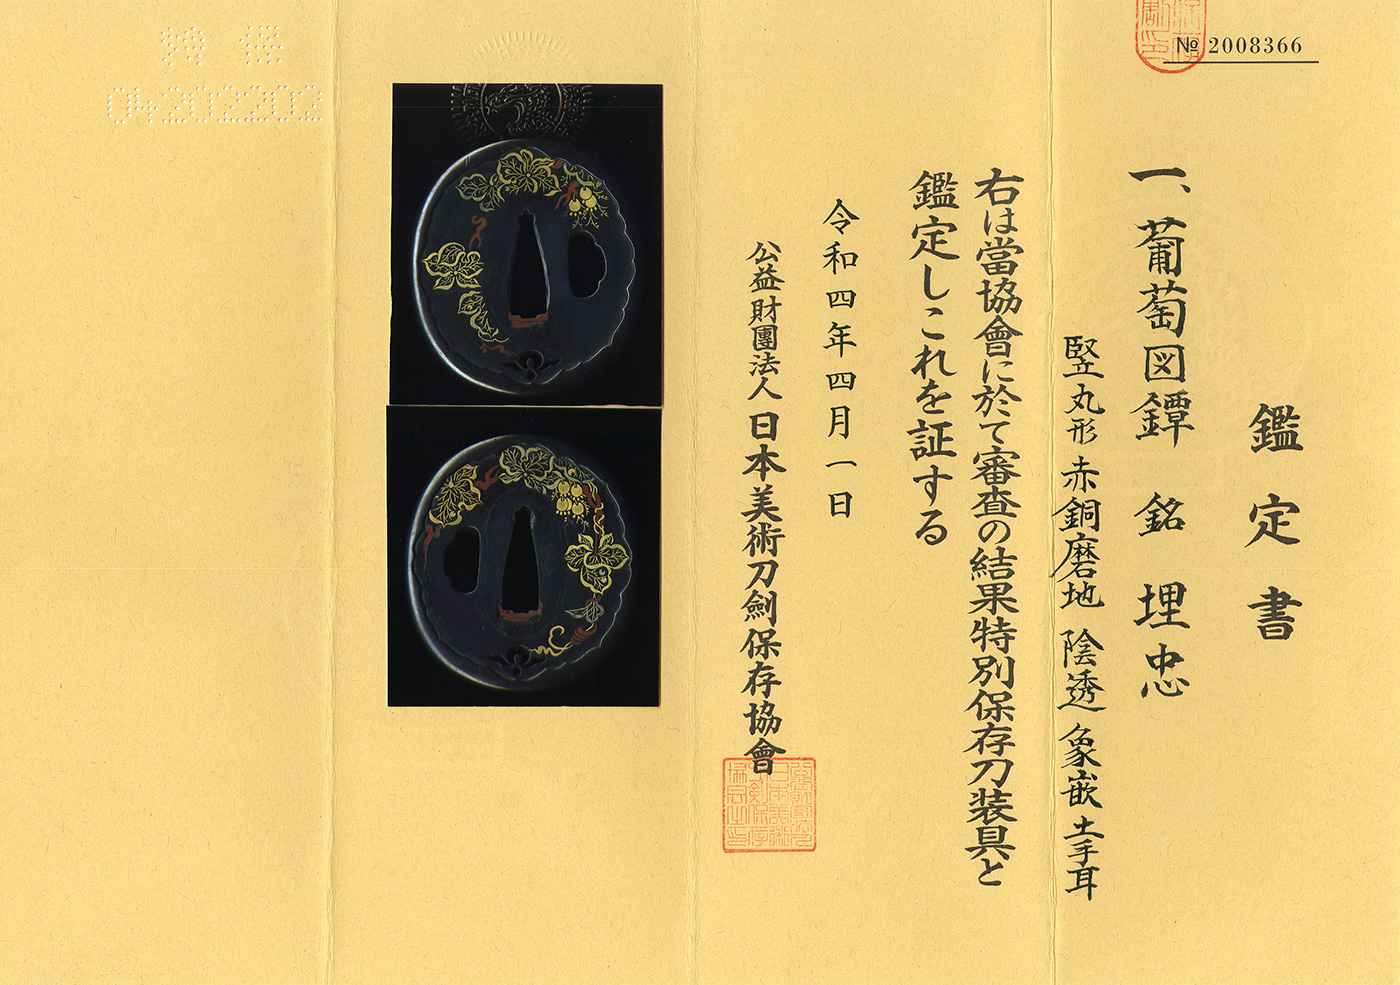 № 2008366
鑑定書
一、葡萄図鐔 銘 埋忠
竪丸形 赤銅磨地 陰透 象嵌 土手耳
右は當協會に於て審査の結果特別保存刀装具と
鑑定しこれを証する
令和四年四月一日
公益財團法人 日本美術刀劍保存協會
特保
04202202